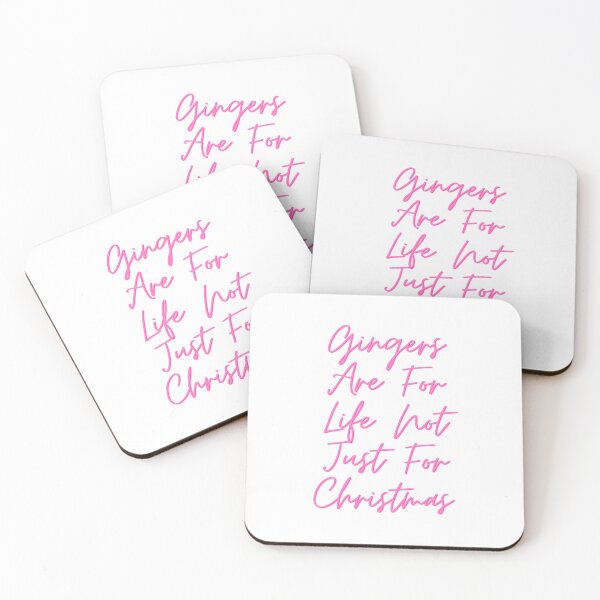 Gingers
Are For
Life Not
For
Gingers
Are For
Life Not
Just For
Gingers
Are For
Life Not
Just Fo
Christm
Gingers
Are For
Life Not
Just For
Christmas